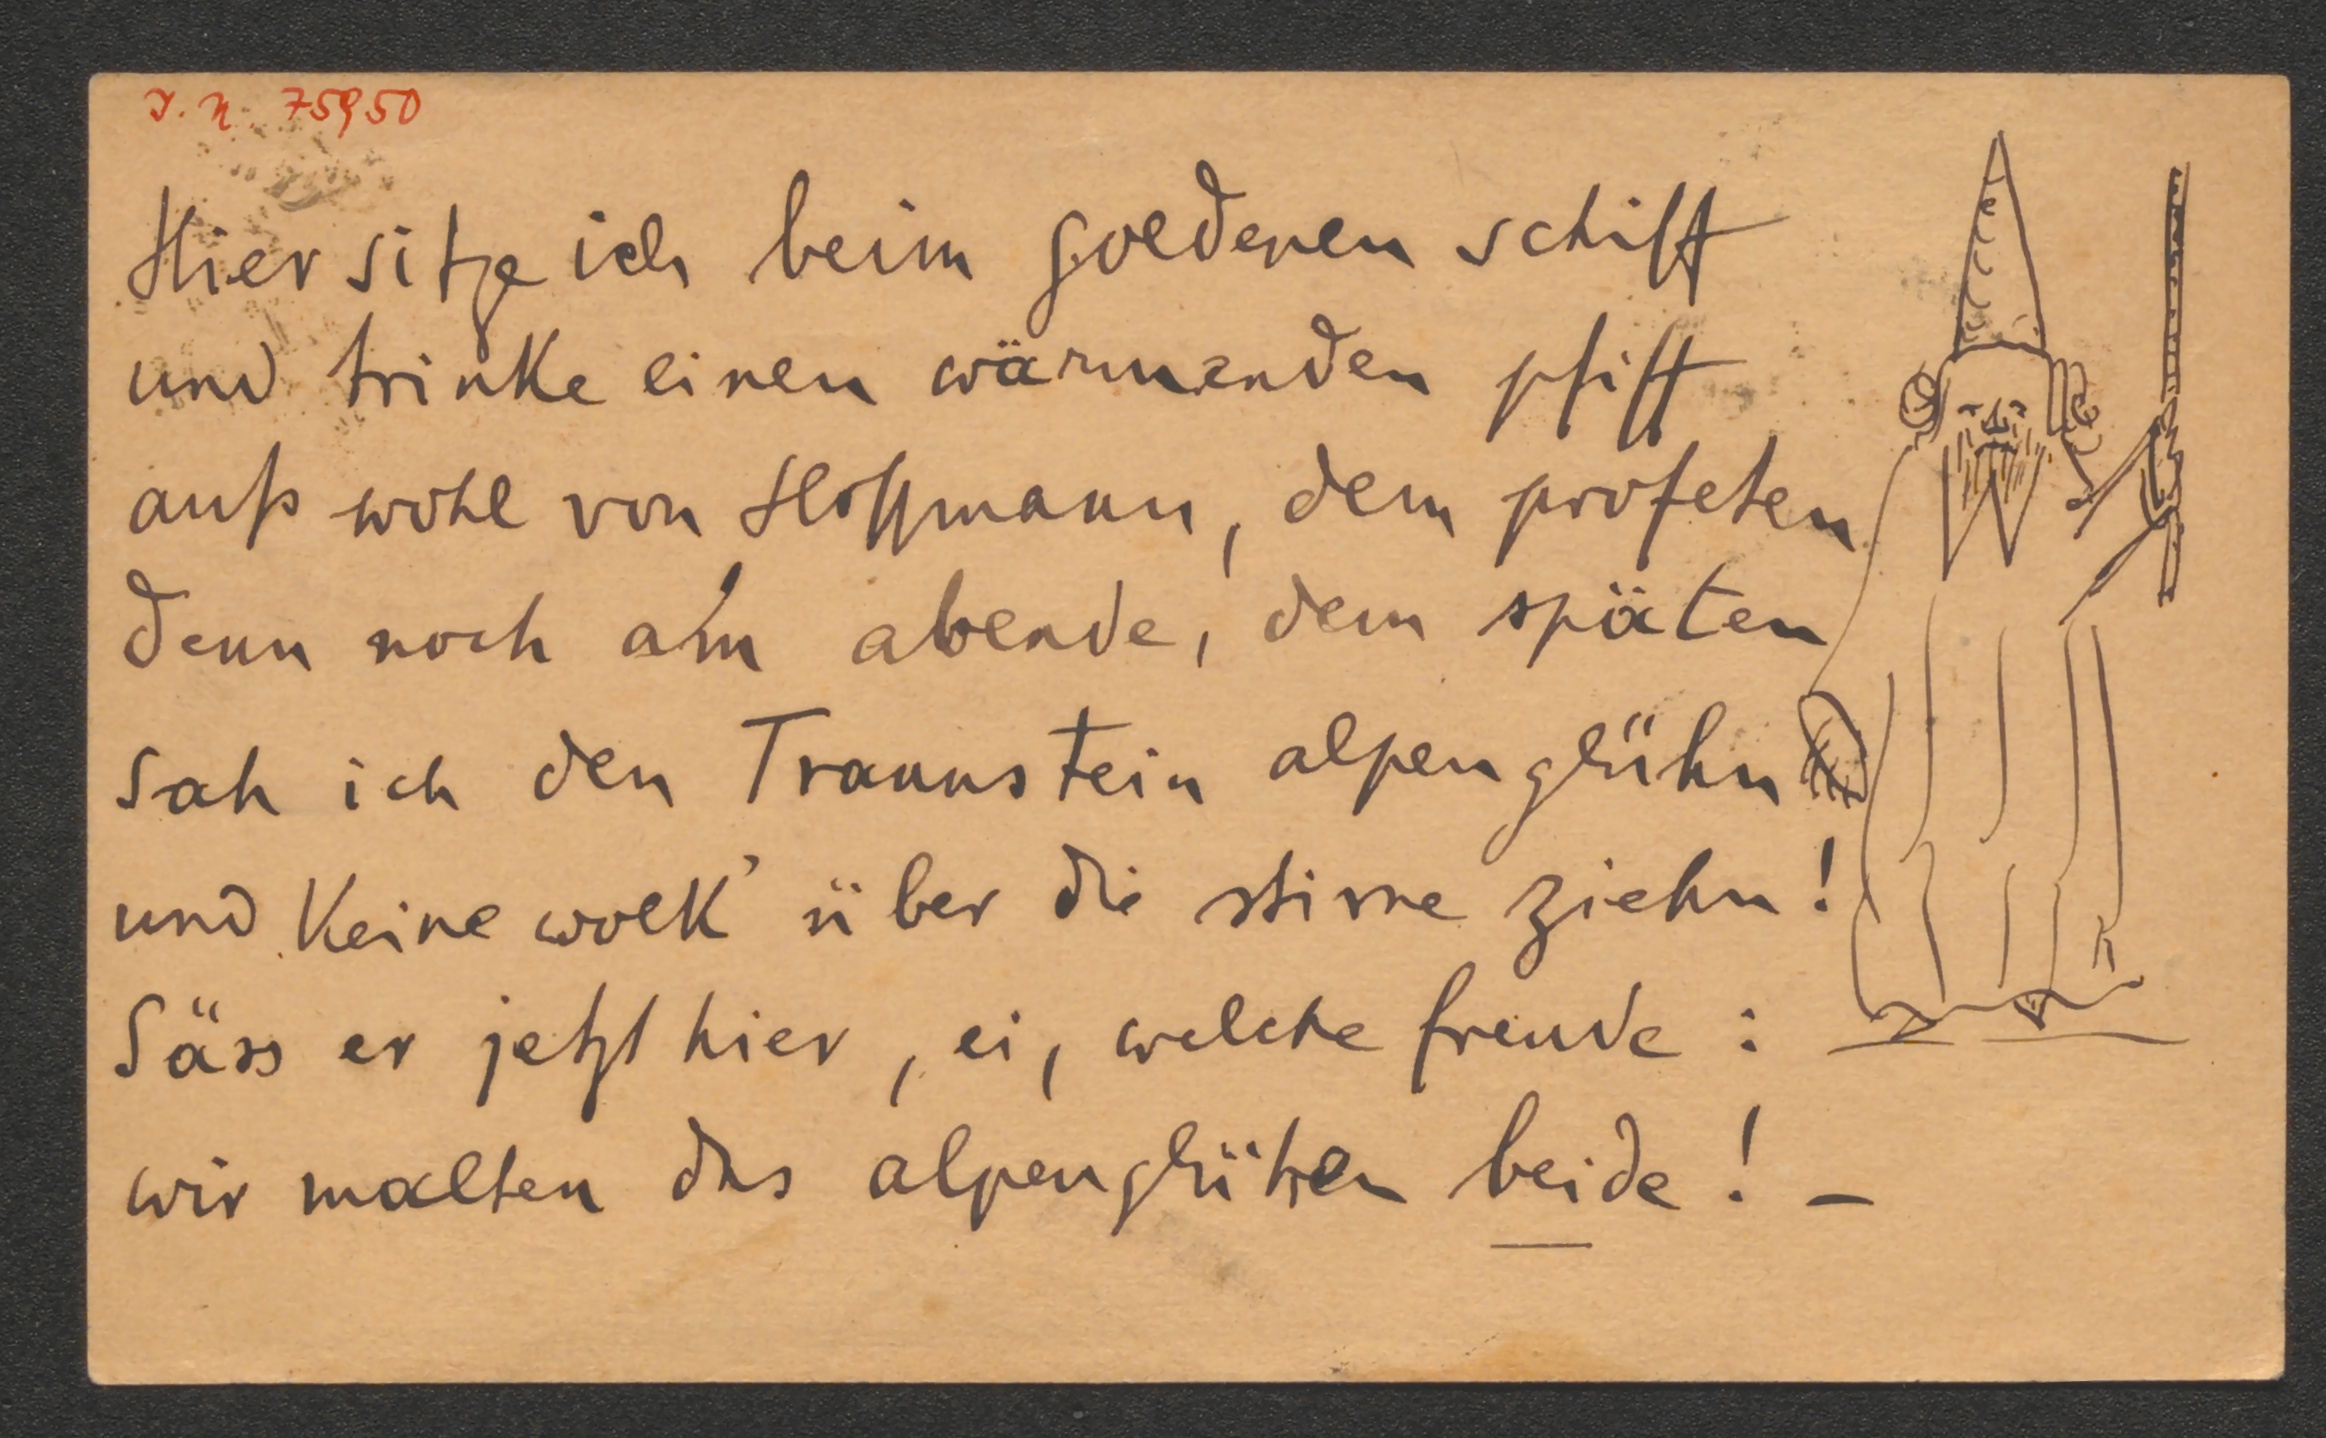 I. N. 75950
Hier sitze ich beim goldenen schiff
und trinke einen wärmenden pfiff
aufs wohl von Hoffmann, dem profeten
denn noch am abende, dem späten
sah ich den Traunstein alpenglühn
und keine wolk' über die stirne ziehn!
Säss er jetzt hier, ei, welche freude:
wir malten das alpenglühen beide! –